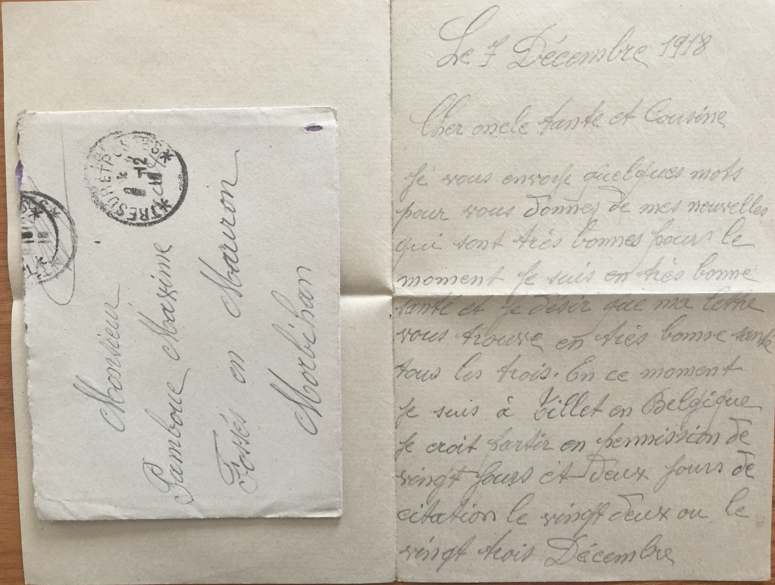 Monsieur
Pamboue Maxime
Fossés en Mauron
Morbihan
TRESOR ET POSTES
Le 7 Décembre 1918
Cher oncle tante et Cousine
Je vous envoye quelques mots
pour vous donner de mes nouvelles
qui sont très bonnes pour le
moment Je suis en très bonne
santé et Je désir que ma lettre
vous trouve en très bonne santé
tous les trois. En ce moment
Je suis à Tillet en Belgique
Je croit partir en permission de
vingt Jours et deux Jours de
citation le vingt deux ou le
vingt trois Décembre